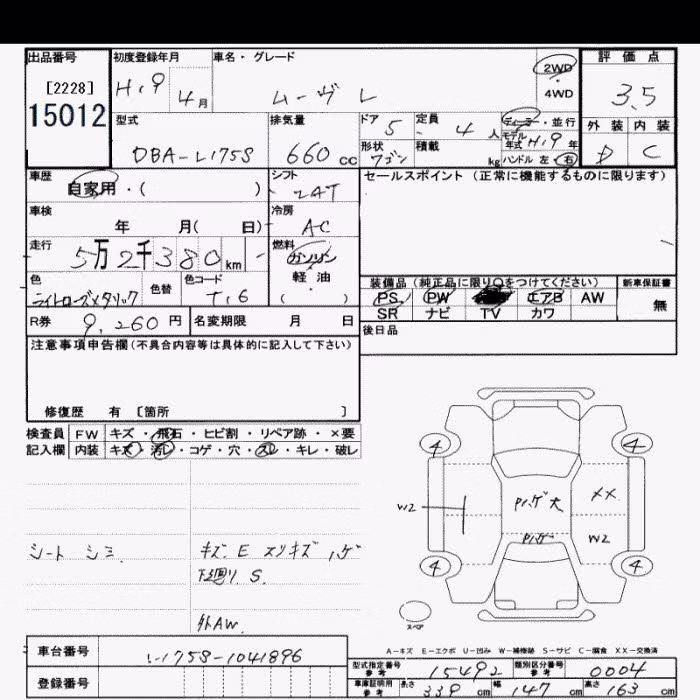 出品番号 初度登録年月 車名・グレード 評価点
[2228] H19 4月 ムーヴ L 2WD・4WD 3.5
15012
型式 排気量 ドア 5 定員 4人 ディーラー・並行 外装 内装
DBA-L175S 660cc 形状 ワゴン 積載 kg モデル年式 H19年 D C
ハンドル 左・右
車歴 シフト セールスポイント(正常に機能するものに限ります)
自家用・( ) AT
車検 冷房
年 月( 日) AC
走行 燃料
5万2千380km ガソリン・軽油
色 色替 色コード 装備品(純正品に限り○をつけてください) 新車保証書
ライトローズメタリック T16 ( ) PS PW エアB AW 無
SR ナビ TV カワ
R券 9,260円 名変期限 月 日 後日品
注意事項申告欄(不具合内容等は具体的に記入して下さい)
修復歴 有 [箇所 ]
検査員 FW キズ・飛石・ヒビ割・リペア跡・×要
記入欄 内装 キズ・汚レ・コゲ・穴・スレ・キレ・破レ
4 4
W2 Pハゲ大 XX
Pハゲ W2
シート シミ キズ E スリキズ ハゲ
下廻リ S.
4 4
外AW.
スペア
A-キズ E-エクボ U-凹み W-補修跡 S-サビ C-腐食 XX-交換済
車台番号 L175S-1041896
型式指定番号 参考 15492 類別区分番号 参考 0004
登録番号
車庫証明用 参考 長さ 339cm 幅 147cm 高さ 163cm